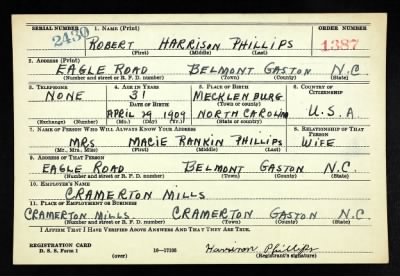 SERIAL NUMBER 1. NAME (Print) ORDER NUMBER
2430 ROBERT HARRISON PHILLIPS 1387
(First) (Middle) (Last)
2. ADDRESS (Print)
EAGLE ROAD BELMONT GASTON N.C.
(Number and street or R. F. D. number) (Town) (County) (State)
3. TELEPHONE 4. AGE IN YEARS 5. PLACE OF BIRTH 6. COUNTRY OF CITIZENSHIP
NONE 31 MECKLENBURG
DATE OF BIRTH (Town or county)
APRIL 29 1909 NORTH CAROLINA U.S.A
(Exchange) (Number) (Mo.) (Day) (Yr.) (State or country)
7. NAME OF PERSON WHO WILL ALWAYS KNOW YOUR ADDRESS 8. RELATIONSHIP OF THAT PERSON
MRS MACIE RANKIN PHILLIPS WIFE
(Mr., Mrs., Miss) (First) (Middle) (Last)
9. ADDRESS OF THAT PERSON
EAGLE ROAD BELMONT GASTON N.C.
(Number and street or R. F. D. number) (Town) (County) (State)
10. EMPLOYER'S NAME
CRAMERTON MILLS
11. PLACE OF EMPLOYMENT OR BUSINESS
CRAMERTON MILLS CRAMERTON GASTON N.C.
(Number and street or R. F. D. number) (Town) (County) (State)
I AFFIRM THAT I HAVE VERIFIED ABOVE ANSWERS AND THAT THEY ARE TRUE.
REGISTRATION CARD
D. S. S. Form 1 16—17105 Harrison Phillips
(over) (Registrant's signature)